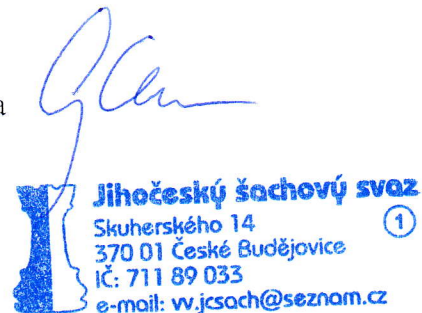 a
Jihočeský šachový svaz
Skuherského 14
1
370 01 České Budějovice
IČ: 711 89 033
e-mail: vv.jcsach@seznam.cz